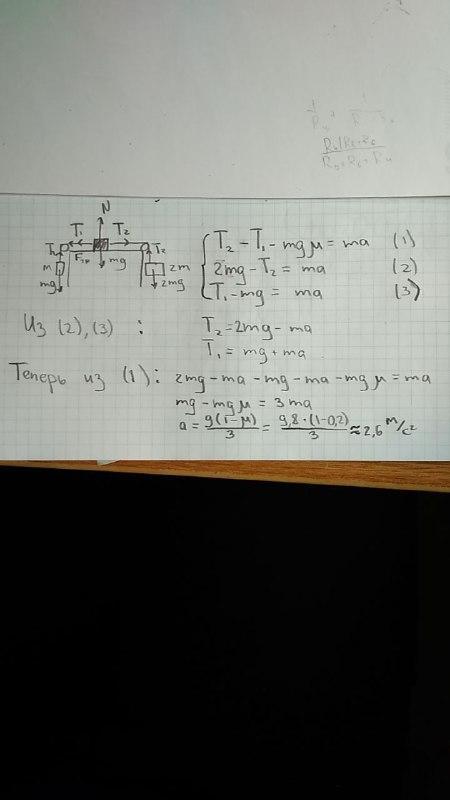 N
T₁ T₂
T₁ T₂
Fтр mg
m 2m
mg 2mg
T₂ - T₁ - mgμ = ma (1)
2mg - T₂ = ma (2)
T₁ - mg = ma (3)
Из (2), (3) : T₂ = 2mg - ma
T₁ = mg + ma
Теперь из (1): 2mg - ma - mg - ma - mgμ = ma
mg - mgμ = 3ma
a = g(1-μ)/3 = 9,8·(1-0,2)/3 ≈ 2,6 м/с²